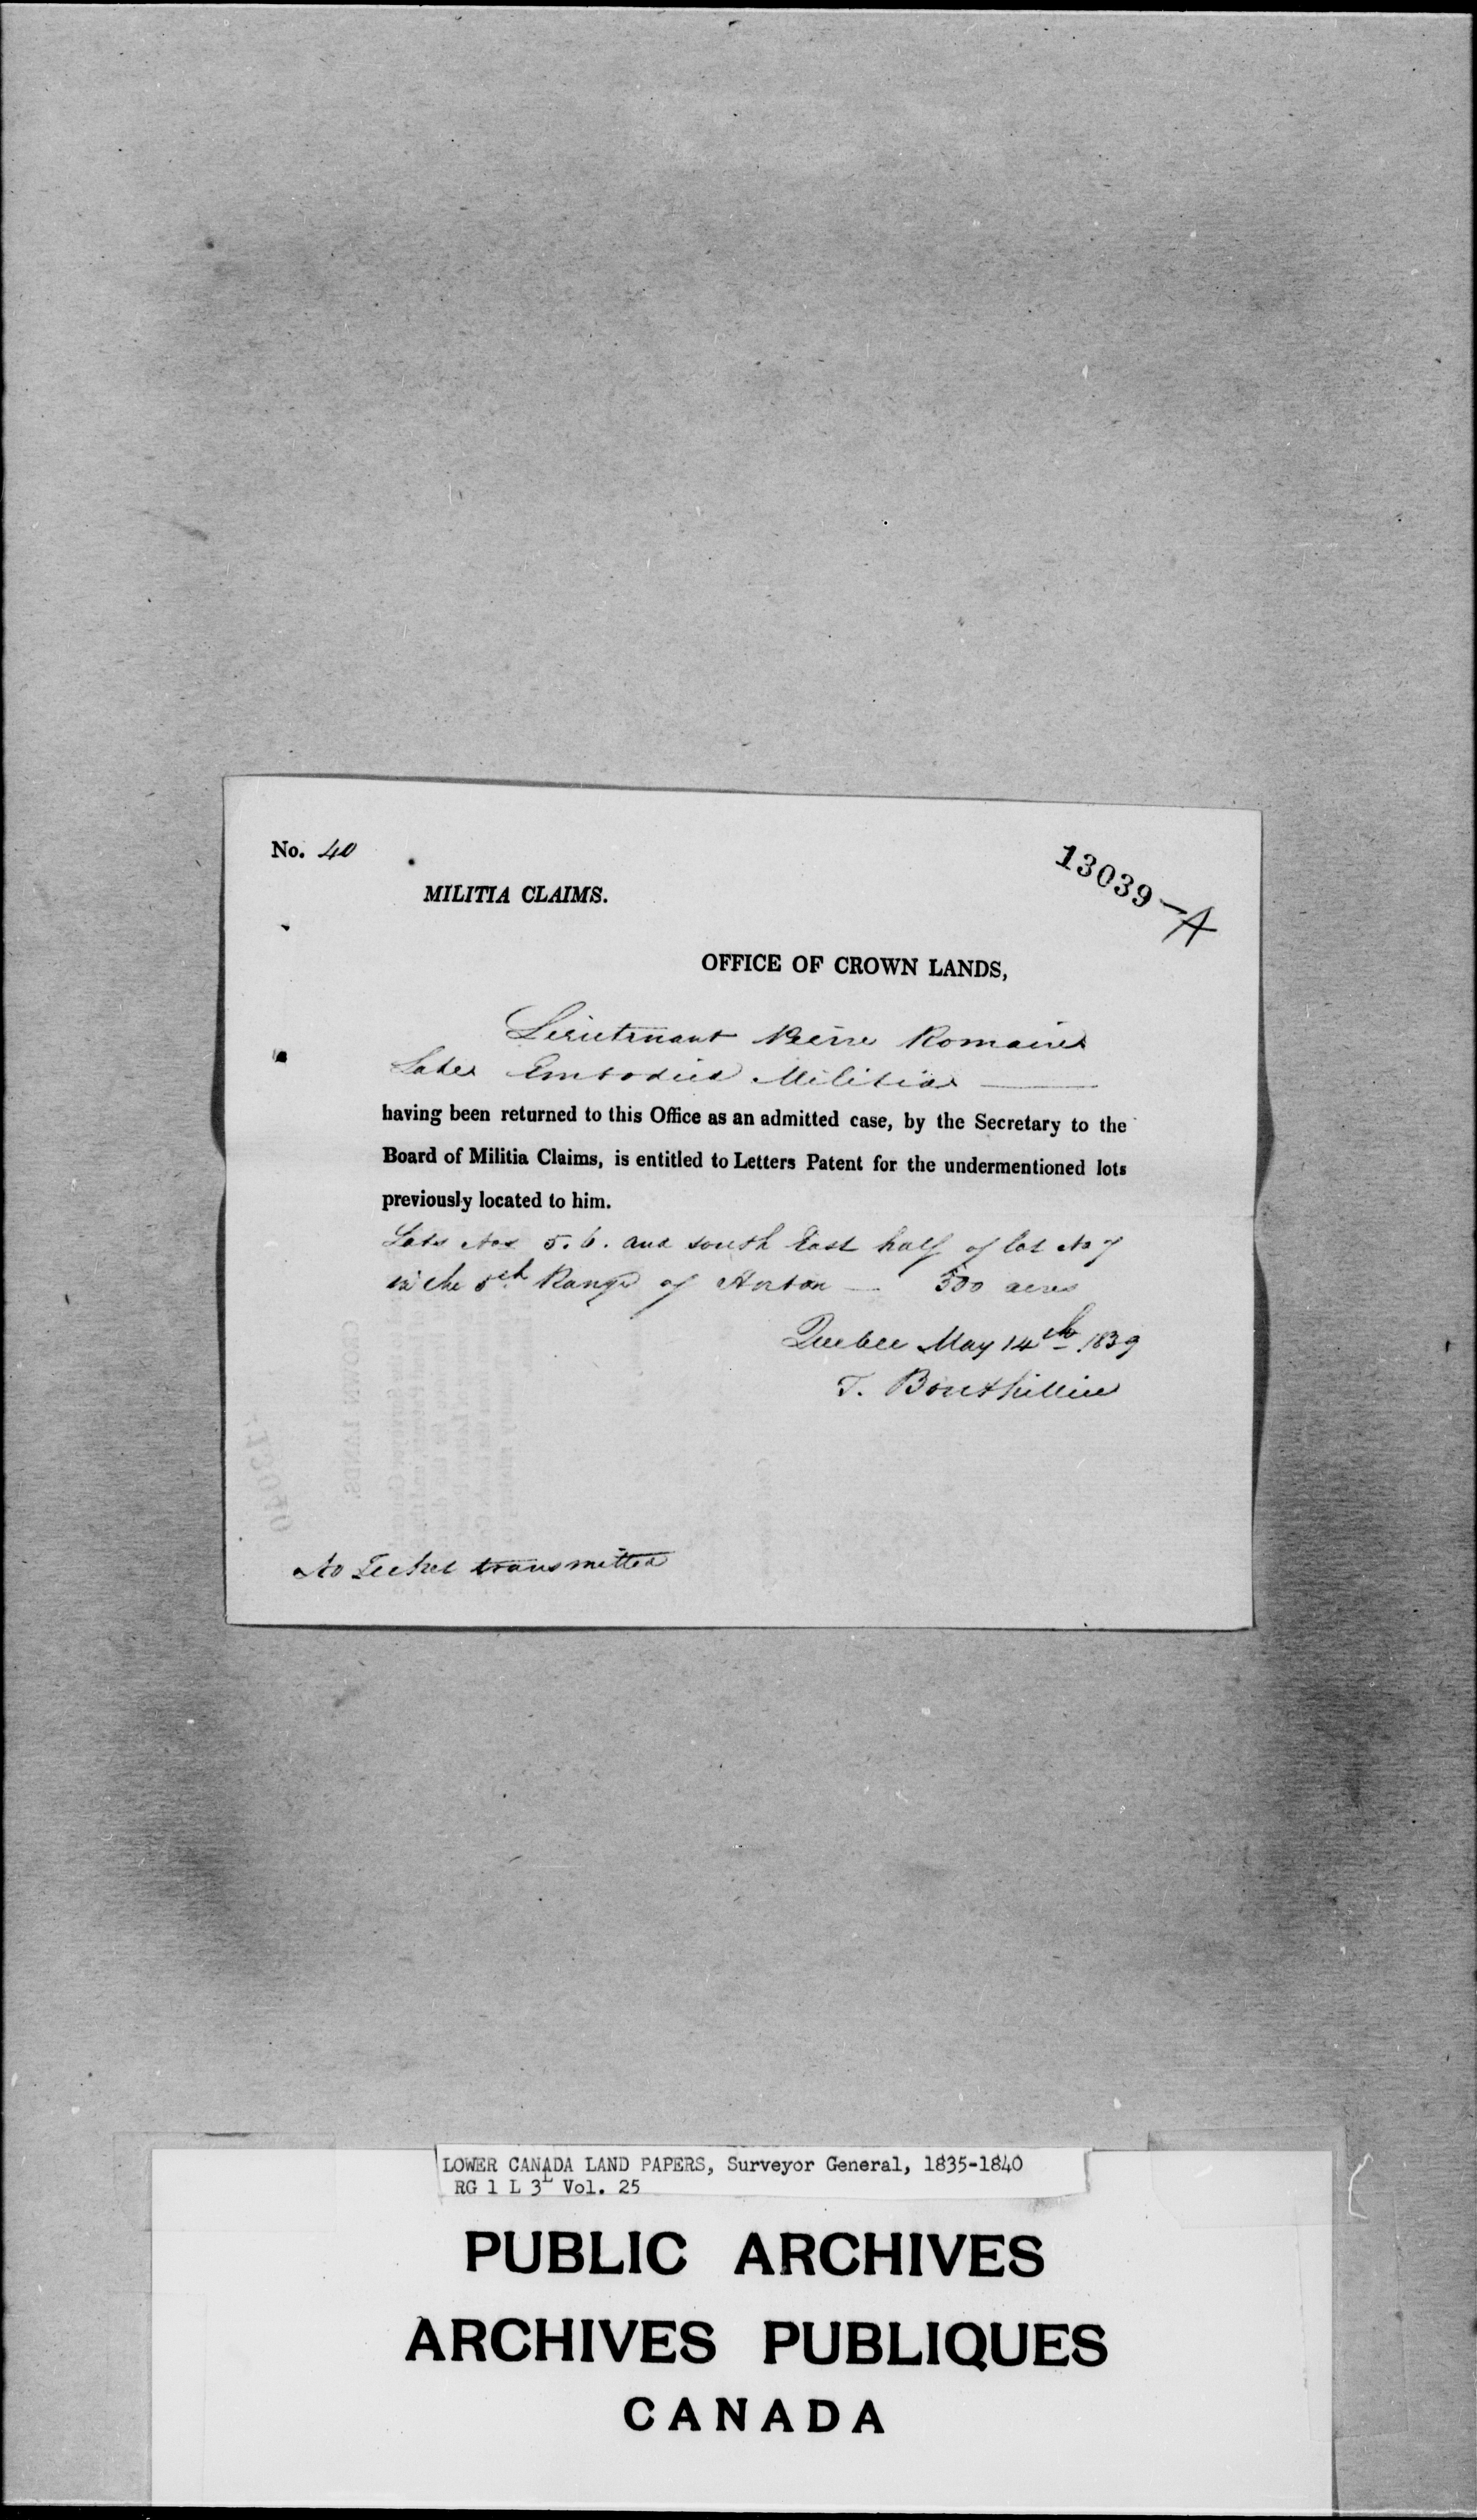 No. 40
13039-A
MILITIA CLAIMS.
OFFICE OF CROWN LANDS,
Lieutenant Pierre Romain
Late Embodied Militia
having been returned to this Office as an admitted case, by the Secretary to the
Board of Militia Claims, is entitled to Letters Patent for the undermentioned lots
previously located to him.
Lots Nos 5. 6. and south East half of lot No 7
in the 5th Range of Horton — 500 acres
Quebec May 14th 1839
T. Bouthillier
No Ticket transmitted
LOWER CANADA LAND PAPERS, Surveyor General, 1835-1840
RG 1 L 3L Vol. 25
PUBLIC ARCHIVES
ARCHIVES PUBLIQUES
CANADA